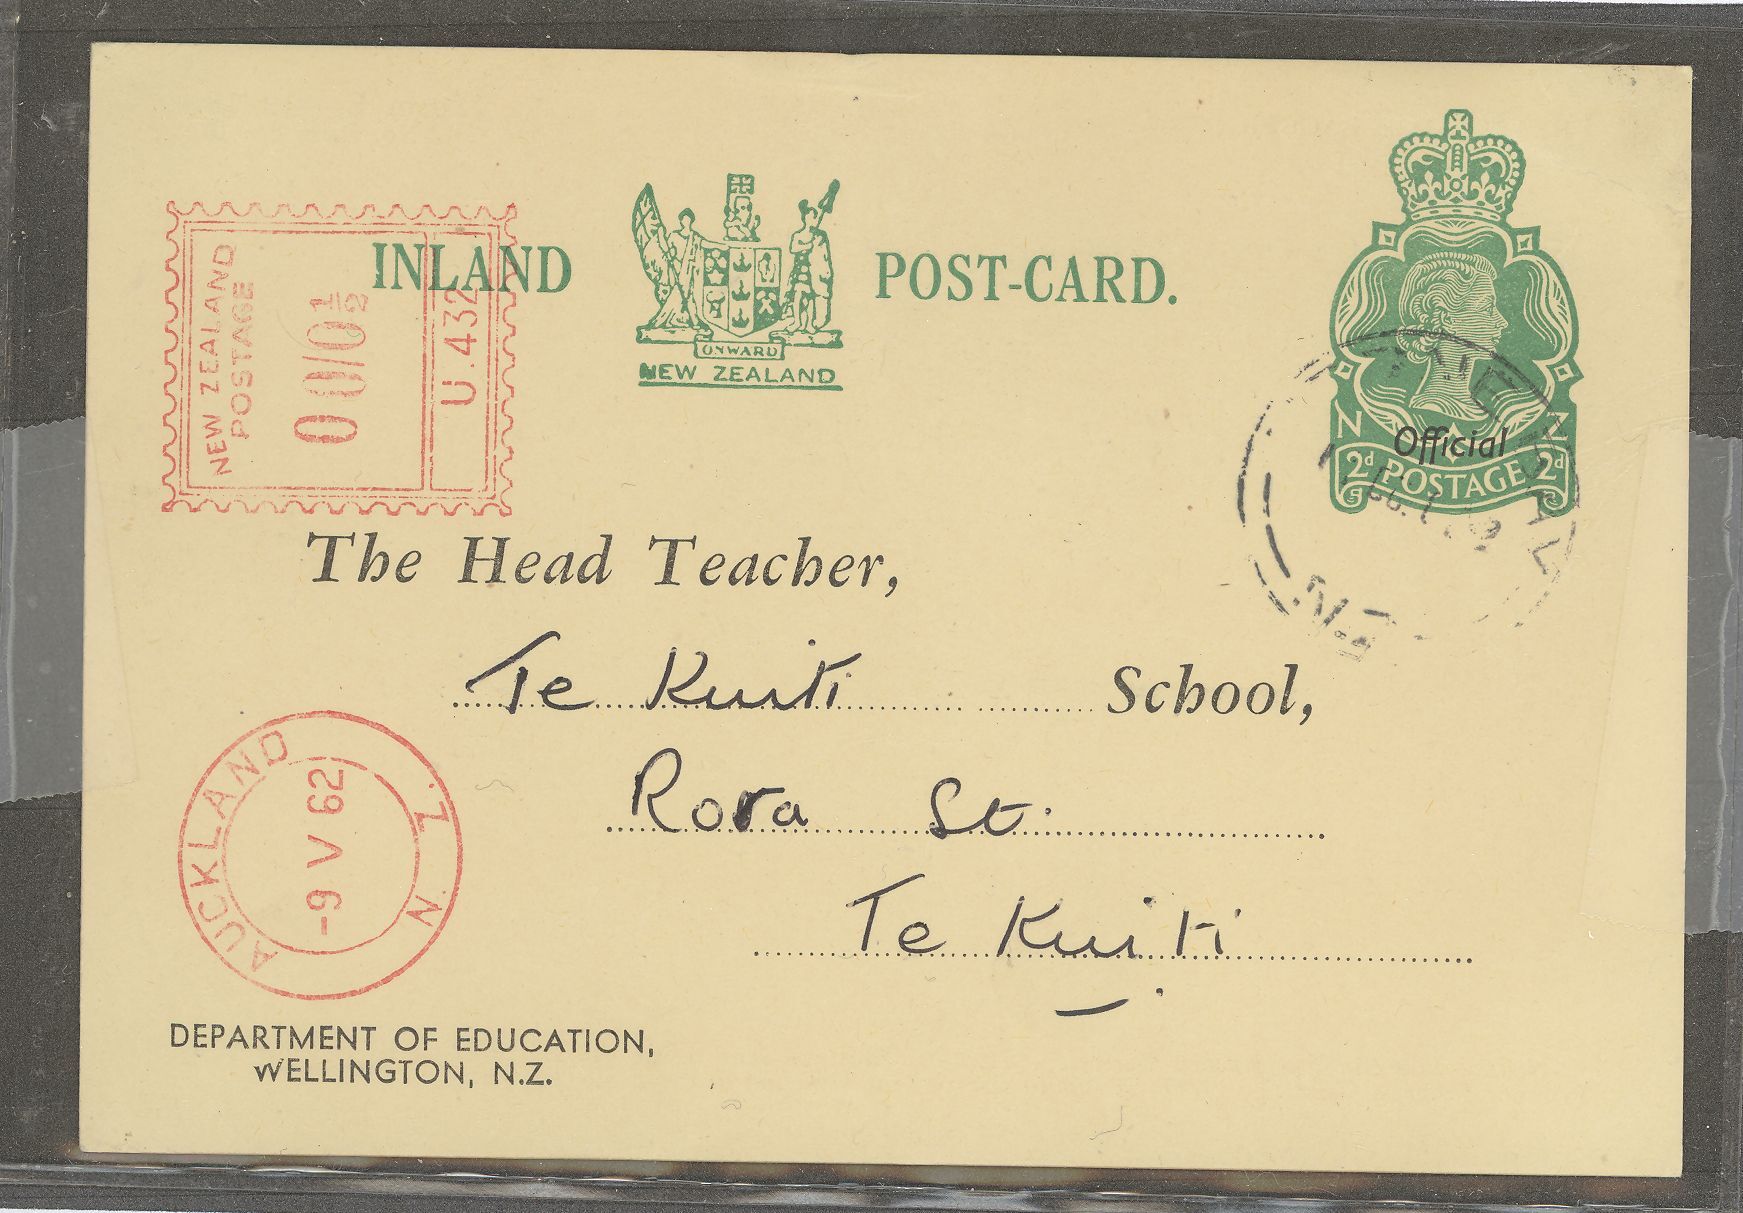 NEW ZEALAND
POSTAGE
00/0½
U.432
INLAND POST-CARD.
ONWARD
NEW ZEALAND
N Z
Official
2d POSTAGE 2d
N.Z.
The Head Teacher,
Te Kuiti School,
Rora St.
Te Kuiti
AUCKLAND N.Z.
-9 V 62
DEPARTMENT OF EDUCATION,
WELLINGTON, N.Z.